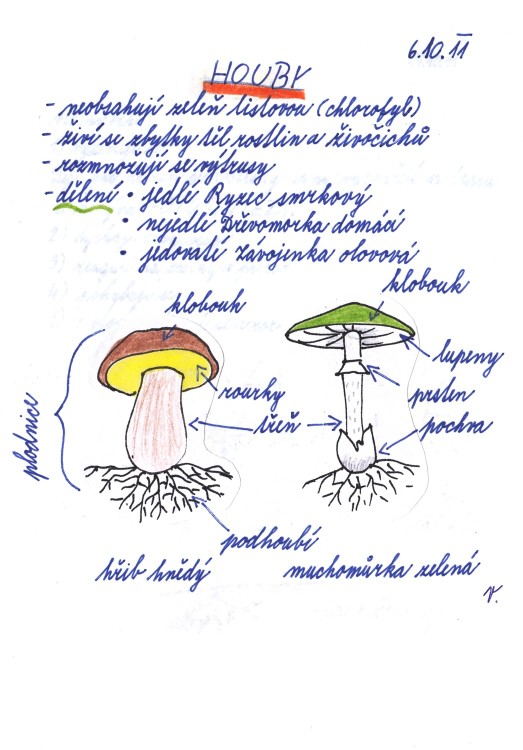 6.10.11
HOUBY
- neobsahují zeleň listovou (chlorofyb)
- živí se zbytky těl rostlin a živočichů
- rozmnožují se výtrusy
- dělení • jedlé Ryzec smrkový
• nejedlé Dřevomorka domácí
• jedovaté Závojenka olovová
klobouk
klobouk
lupeny
rourky
prsten
třeň
pochva
plodnice
podhoubí
hřib hnědý
muchomůrka zelená
V.